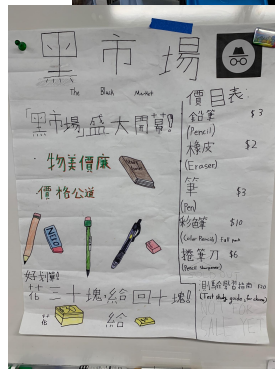 黑市場
The Black Market
「黑市場」盛大開幕!
物美價廉
價格公道
好划算!
花三十塊,給回十塊!
花 給
價目表:
鉛筆 $3
(Pencil)
橡皮 $2
(Eraser)
筆 $3
(Pen)
彩鉛筆 $10
(Color Pencils) Full pack
捲筆刀 $6
(Pencil Sharpener)
測驗學習指南 $10
(Test study guide, for cheap)